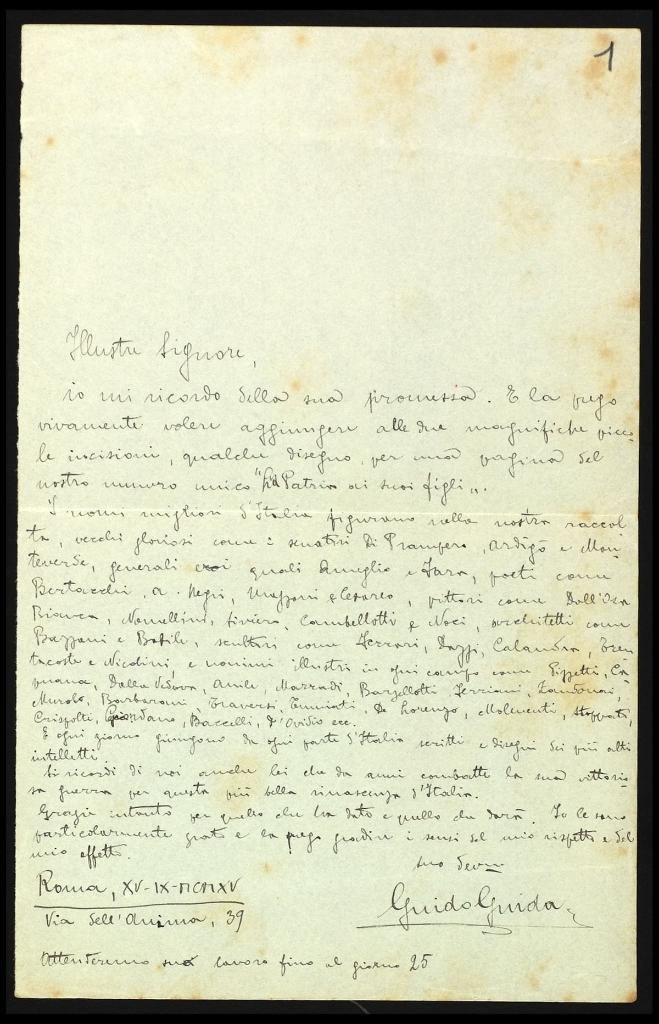 1
Illustre Signore,
io mi ricordo della sua promessa. E la prego
vivamente volere aggiungere alle due magnifiche picco-
le incisioni, qualche disegno per una pagina del
nostro numero unico "La Patria ai suoi figli".
I nomi migliori d'Italia figurano nella nostra raccol-
ta, vecchi gloriosi come i senatori Di Prampero, Ardigò e Mon-
teverde, generali quali Ameglio e Fara, poeti come
Bertacchi, A. Negri, Mazzoni e Cesareo, pittori come Dall'Oca
Bianca, Nomellini, Siviero, Cambellotti e Noci, architetti come
Bazzani e Basile, scultori come Ferrari, Dazzi, Calandra, Tren-
tacoste e Nicolini, e uomini illustri in ogni campo come Pizzetti, Ca
puana, Dalla Vedova, Anile, Marradi, Barzellotti, Zandonai,
Murolo, Barbarani, Traversi, Tumiati, De Lorenzo, Molmenti, Stoppato,
Crispolti, Giordano, Baccelli, D'Ovidio ecc.
E ogni giorno giungono da ogni parte d'Italia scritti e disegni dei più alti
intelletti.
Si ricordi di noi anche lei che da anni combatte la sua vittorio-
sa guerra per questa più bella rinascenza d'Italia.
Grazie intanto per quello che ha dato e quello che darà. Io le sono
particolarmente grato e la prego gradire i sensi del mio rispetto e del
mio affetto.
suo dev.mo
Roma, XV-IX-MCMXV
Guido Guida
Via dell'Anima, 39
Attenderemo suo lavoro fino al giorno 25